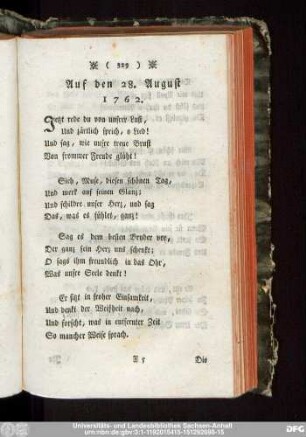 ※ ( 229 ) ※
Auf den 28. August
1762.
Jetzt rede du von unsrer Lust,
Und zärtlich sprich, o Lied!
Und sag, wie unsre treue Brust
Von frommer Freude glüht!
Sieh, Muse, diesen schönen Tag,
Und merk auf seinen Glanz;
Und schildre unser Herz, und sag
Das, was es fühlet, ganz!
Sag es dem besten Bruder vor,
Der ganz sein Herz uns schenkt;
O sags ihm freundlich in das Ohr,
Was unsre Seele denkt!
Er sitzt in froher Einsamkeit,
Und denkt der Weisheit nach,
Und forscht, was in entfernter Zeit
So mancher Weise sprach.
Die
Universitäts- und Landesbibliothek Sachsen-Anhalt
urn:nbn:de:gbv:3:1-1192015415-151292698-15
DFG